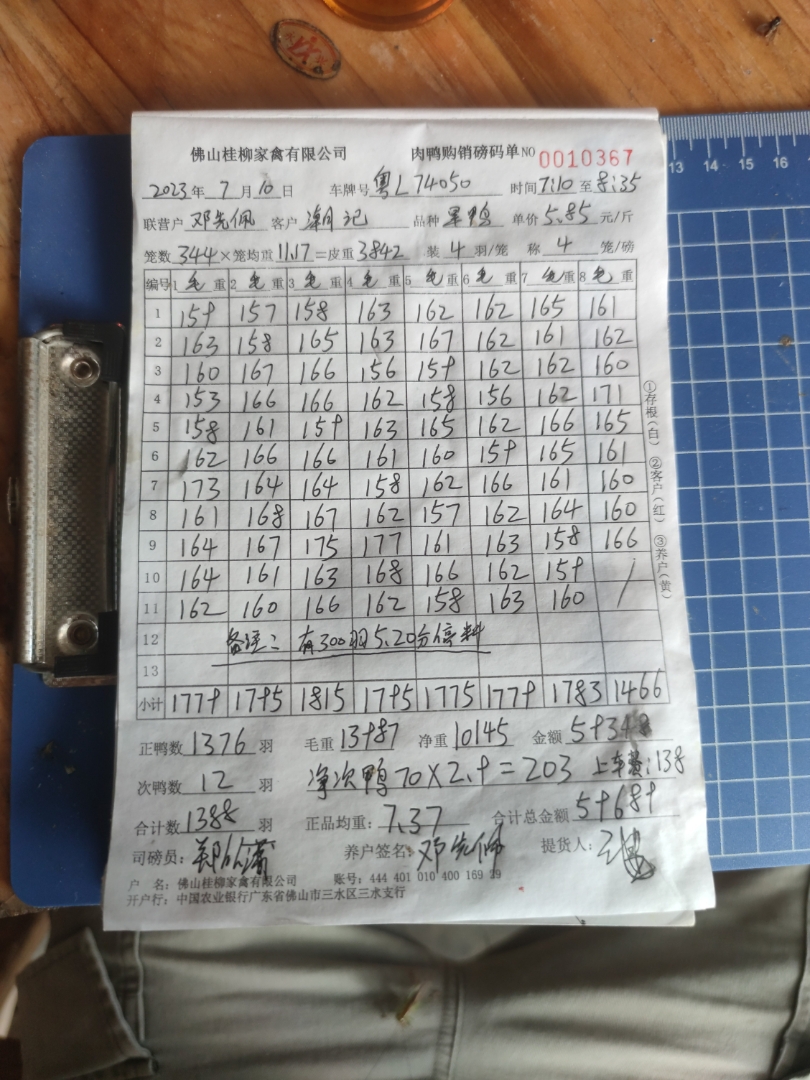 佛山桂柳家禽有限公司 肉鸭购销磅码单NO 0010367
2023年 7月 10日 车牌号 粤L74050 时间 7:10 至 8:35
联营户 邓先佩 客户 潮记 品种 单价 5.85 元/斤
笼数 344 × 笼均重 11.17 = 皮重 3842 装 4 羽/笼 称 4 笼/磅
编号 1 毛重 2 毛重 3 毛重 4 毛重 5 毛重 6 毛重 7 毛重 8 毛重
1 159 157 158 163 162 162 165 161
2 163 158 165 163 167 162 161 162
3 160 167 166 156 159 162 162 160
4 153 166 166 162 158 156 162 171
5 158 161 159 163 165 162 166 165
6 162 166 166 161 160 159 165 161
7 173 164 164 158 162 166 161 160
8 161 168 167 162 157 162 164 160
9 164 167 175 177 161 163 158 166
10 164 161 163 168 166 162 159 /
11 162 160 166 162 158 163 160
12 备注：有300羽5.20分停料
13
小计 1779 1795 1815 1795 1775 1779 1783 1466
正鸭数 1376 羽 毛重 13987 净重 10145 金额 59348
次鸭数 12 羽 净次鸭 70×2.9=203 上车费:138
合计数 1388 羽 正品均重: 7.37 合计总金额 59689
司磅员: 养户签名: 邓先佩 提货人:
户 名: 佛山桂柳家禽有限公司 账号: 444 401 010 400 169 39
开户行: 中国农业银行广东省佛山市三水区三水支行
①存根(白) ②客户(红) ③养户(黄)
13 14 15 16
13
14
15
16